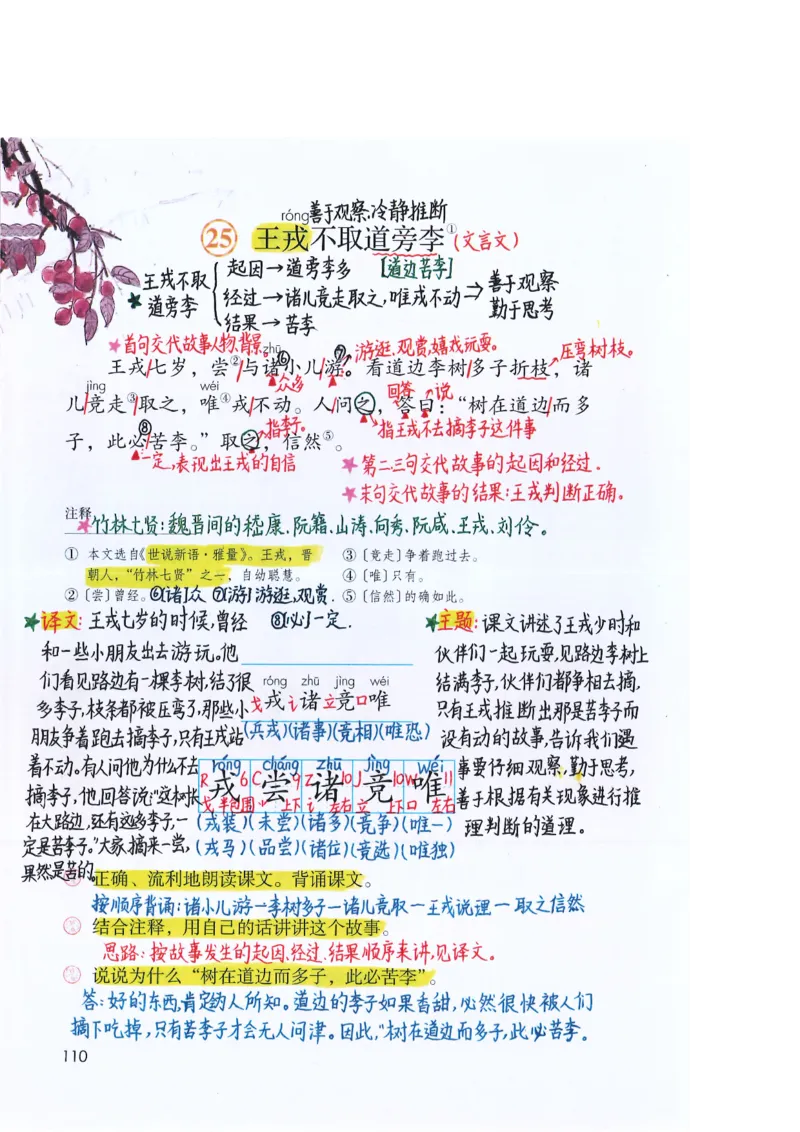 róng善于观察,冷静推断
25 王戎不取道旁李①(文言文)
王戎不取道旁李
起因→道旁李多 【道边苦李】
经过→诸儿竞走取之,唯戎不动⇒善于观察 勤于思考
结果→苦李
首句交代故事人物.背景。 zhū ⑥ ⑦游逛.观赏,嬉戏玩耍。 压弯树枝。
王戎/七岁,尝②/与诸/小儿/游。看道边李树/多子折枝,诸
jìng wéi 众多 回答 说
儿/竞走③/取之,唯④戎/不动。人/问之,答曰:“树在道边/而多
⑧ 指李子。 指王戎不去摘李子这件事
子,此必/苦李。”取之,信然⑤。
一定,表现出王戎的自信
第二三句交代故事的起因和经过.
末句交代故事的结果:王戎判断正确。
注释
竹林七贤:魏晋间的嵇康.阮籍.山涛.向秀.阮咸.王戎.刘伶。
① 本文选自《世说新语·雅量》。王戎,晋
朝人,“竹林七贤”之一,自幼聪慧。
② 〔尝〕曾经。⑥[诸]众 ⑦[游]游逛,观赏.
③〔竞走〕争着跑过去。
④〔唯〕只有。
⑤〔信然〕的确如此。
⑧[必]一定.
译文:王戎七岁的时候,曾经
和一些小朋友出去游玩。他
们看见路边有一棵李树,结了很
多李子,枝条都被压弯了,那些小
朋友争着跑去摘李子,只有王戎站
着不动。有人问他为什么不去
摘李子,他回答说:“这树长
在大路边,还有这么多李子,一
定是苦李子。”大家摘来一尝,
果然是苦的。
主题:课文讲述了王戎少时和
伙伴们一起玩耍,见路边李树上
结满李子,伙伴们都争相去摘,
只有王戎推断出那是苦李子而
没有动的故事,告诉我们遇
事要仔细观察,勤于思考,
善于根据有关现象进行推
理判断的道理。
róng zhū jìng wéi
戈戎 讠诸 立竞 口唯
(兵戎)(诸事)(竞相)(唯恐)
róng cháng zhū jìng wéi
R 戎 6 C 尝 9 Z 诸 10 J 竞 10 W 唯 11
戈 半包围 ⺌ 上下 讠 左右 立 上下 口 左右
(戎装)(未尝)(诸多)(竞争)(唯一)
(戎马)(品尝)(诸位)(竞选)(唯独)
正确、流利地朗读课文。背诵课文。
按顺序背诵:诸小儿游一李树多子一诸儿竞取一王戎说理一取之信然
结合注释,用自己的话讲讲这个故事。
思路:按故事发生的起因.经过.结果顺序来讲,见译文。
说说为什么“树在道边而多子,此必苦李”。
答:好的东西,肯定纳人所知。道边的李子如果香甜,必然很快被人们
摘下吃掉,只有苦李子才会无人问津。因此,“树在道边而多子,此必苦李。
110